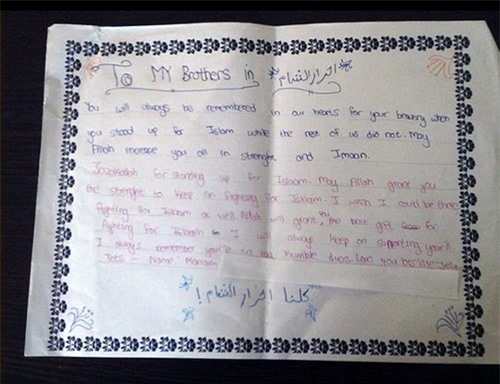 To My Brothers in *احرار الشام*
You will always be remembered in our hearts for your bravery when
you stood up for Islam while the rest of us did not. May
Allah increase you all in strenght and Imaan.
Jazakallah for standing up for Islam. May Allah grant you
the strenght to keep on fighting for Islam. I wish I could be there
fighting for Islam as well. Allah will grant you the best gift for
fighting for Islam I will always keep on supporting you'll
I always remember you'll in my humble duas. Love you
Name: Mariam
كلنا احرار الشام!